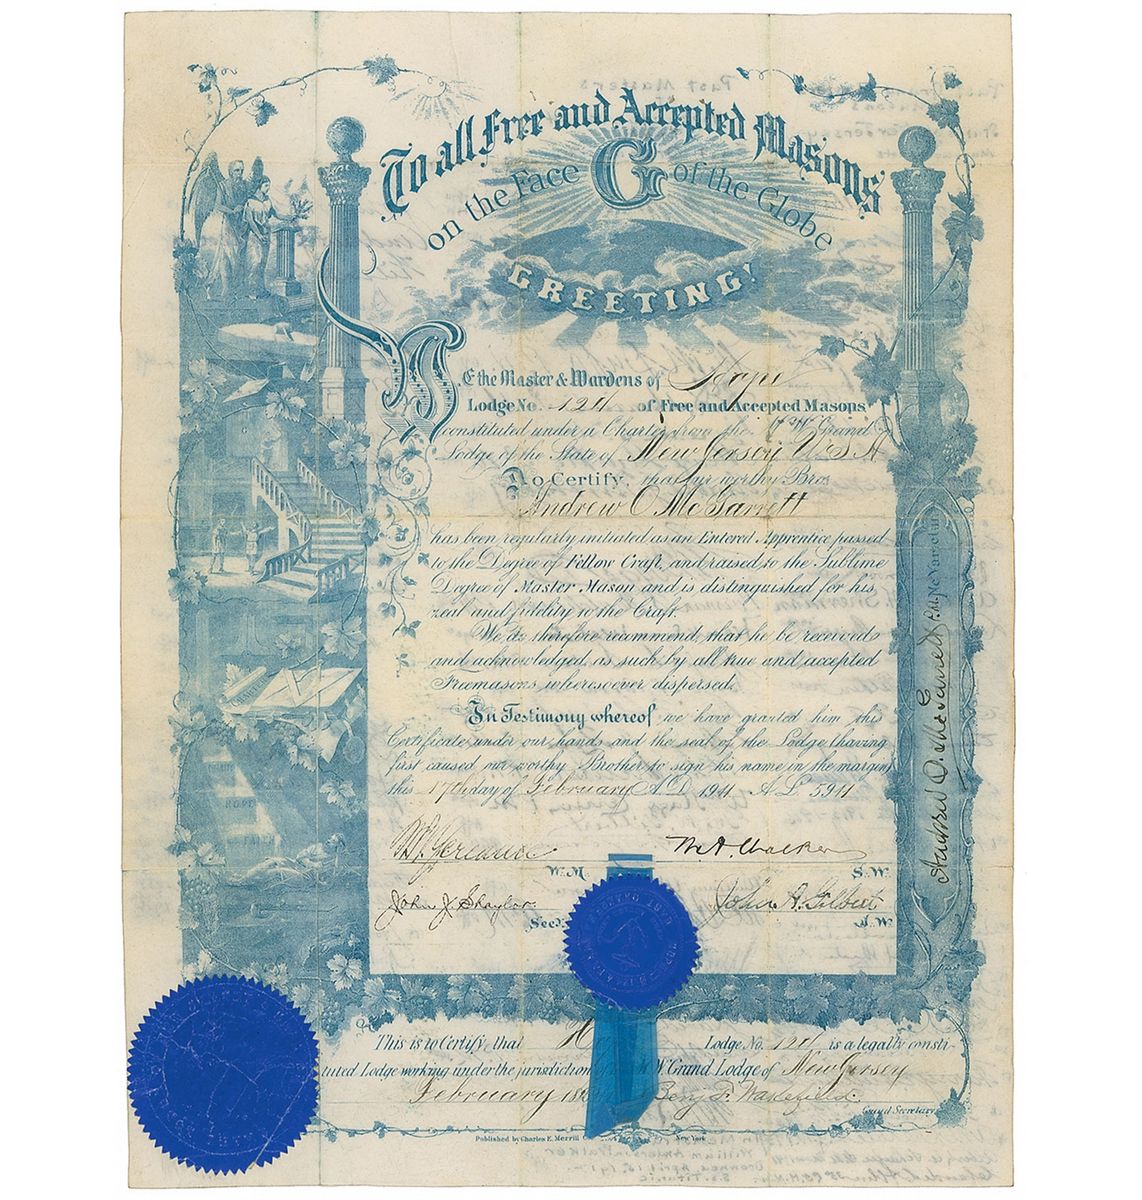 To all Free and Accepted Masons
on the Face G of the Globe
GREETING!
WE the Master & Wardens of Hope
Lodge No. 124 of Free and Accepted Masons
constituted under a Charter from the M W Grand
Lodge of the State of New Jersey U S A
Do Certify, that our worthy Bro.
Andrew O. McGarrett
has been regularly initiated as an Entered Apprentice passed
to the Degree of Fellow Craft, and raised to the Sublime
Degree of Master Mason and is distinguished for his
zeal and fidelity to the Craft.
We, do therefore recommend, that he be received
and acknowledged, as such by all true and accepted
Freemasons, wheresoever dispersed.
In Testimony whereof we have granted him this
Certificate under our hands and the seal of the Lodge (having
first caused our worthy Brother to sign his name in the margin)
this 17th day of February A.D. 1911 A.L. 5911
W. M. S. W.
John J. Shaylor John A. Gilbert
Sec. J. W.
HOPE
Andrew O. McGarrett
Ne Varietur
This is to Certify, that Lodge No. 124 is a legally consti-
tuted Lodge working under the jurisdiction of W Grand Lodge of New Jersey
February Benj. F. Wakefield
Grand Secretary
Published by Charles E. Merrill New York